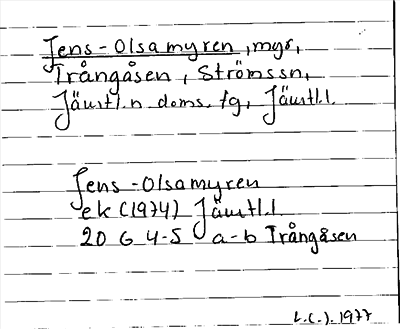 Jens-Olsamyren, myr,
Trångåsen, Strömssn,
Jämtl.n doms.fg, Jämtl.l.
Jens-Olsamyren
ek (1974) Jämtl.l.
20 G 4-5 a-b Trångåsen
1977